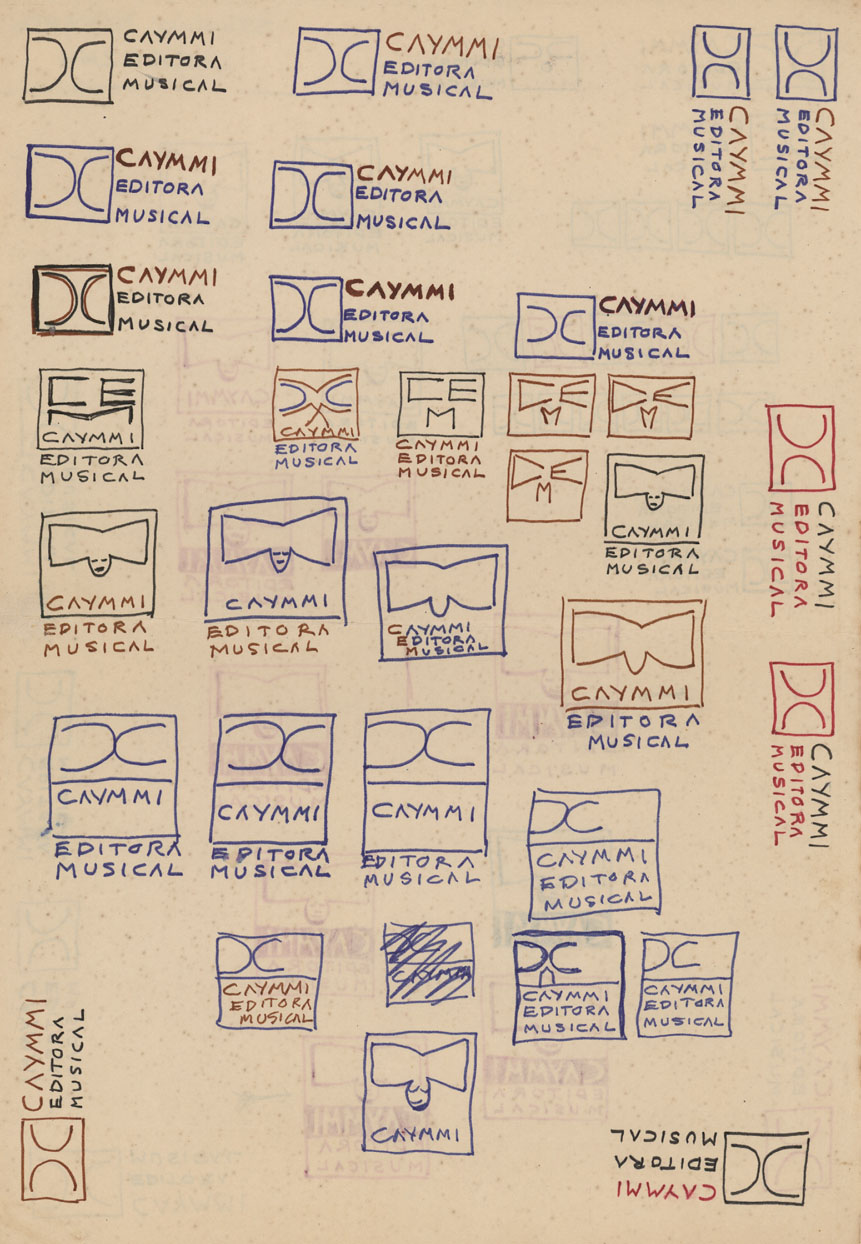 CAYMMI
EDITORA
MUSICAL
CAYMMI
EDITORA
MUSICAL
CAYMMI
EDITORA
MUSICAL
CAYMMI
EDITORA
MUSICAL
CAYMMI
EDITORA
MUSICAL
CAYMMI
EDITORA
MUSICAL
CAYMMI
EDITORA
MUSICAL
CAYMMI
EDITORA
MUSICAL
CAYMMI
EDITORA
MUSICAL
CE
M
CAYMMI
EDITORA
MUSICAL
CAYMMI
EDITORA
MUSICAL
CE
M
CAYMMI
EDITORA
MUSICAL
M
M
M
CAYMMI
EDITORA
MUSICAL
CAYMMI
EDITORA
MUSICAL
CAYMMI
EDITORA
MUSICAL
CAYMMI
EDITORA
MUSICAL
CAYMMI
EDITORA
MUSICAL
CAYMMI
EDITORA
MUSICAL
CAYMMI
EDITORA
MUSICAL
CAYMMI
EDITORA
MUSICAL
CAYMMI
EDITORA
MUSICAL
CAYMMI
EDITORA
MUSICAL
DC
CAYMMI
EDITORA
MUSICAL
DC
CAYMMI
EDITORA
MUSICAL
CAYMMI
DC
CAYMMI
EDITORA
MUSICAL
DC
CAYMMI
EDITORA
MUSICAL
CAYMMI
CAYMMI
EDITORA
MUSICAL
CAYMMI
EDITORA
MUSICAL